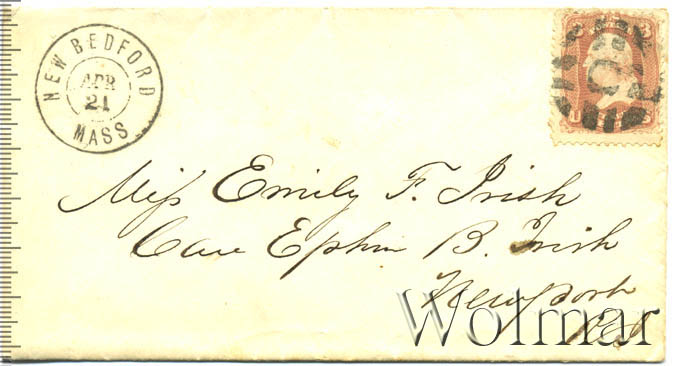 NEW BEDFORD
APR
21
MASS
Miss Emily F. Irish
Care Ephm B. Irish
Newport
R.I.
Wolmar